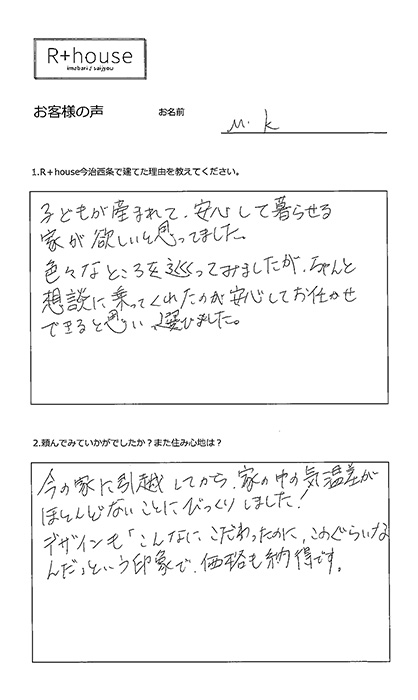 R+house
imabari / saijyou
お客様の声
お名前
M. K
1.R+house今治西条で建てた理由を教えてください。
子どもが産まれて、安心して暮らせる
家が欲しいと思ってました。
色々なところを巡ってみましたが、ちゃんと
想談に乗ってくれたのが安心してお任せ
できると思い選びました。
2.頼んでみていかがでしたか?また住み心地は?
今の家に引越してから、家の中の気温差が
ほとんどないことにびっくりしました!
デザインも「こんなに、こだわったのに、このぐらいな
んだ」という印象で、価格も納得です。